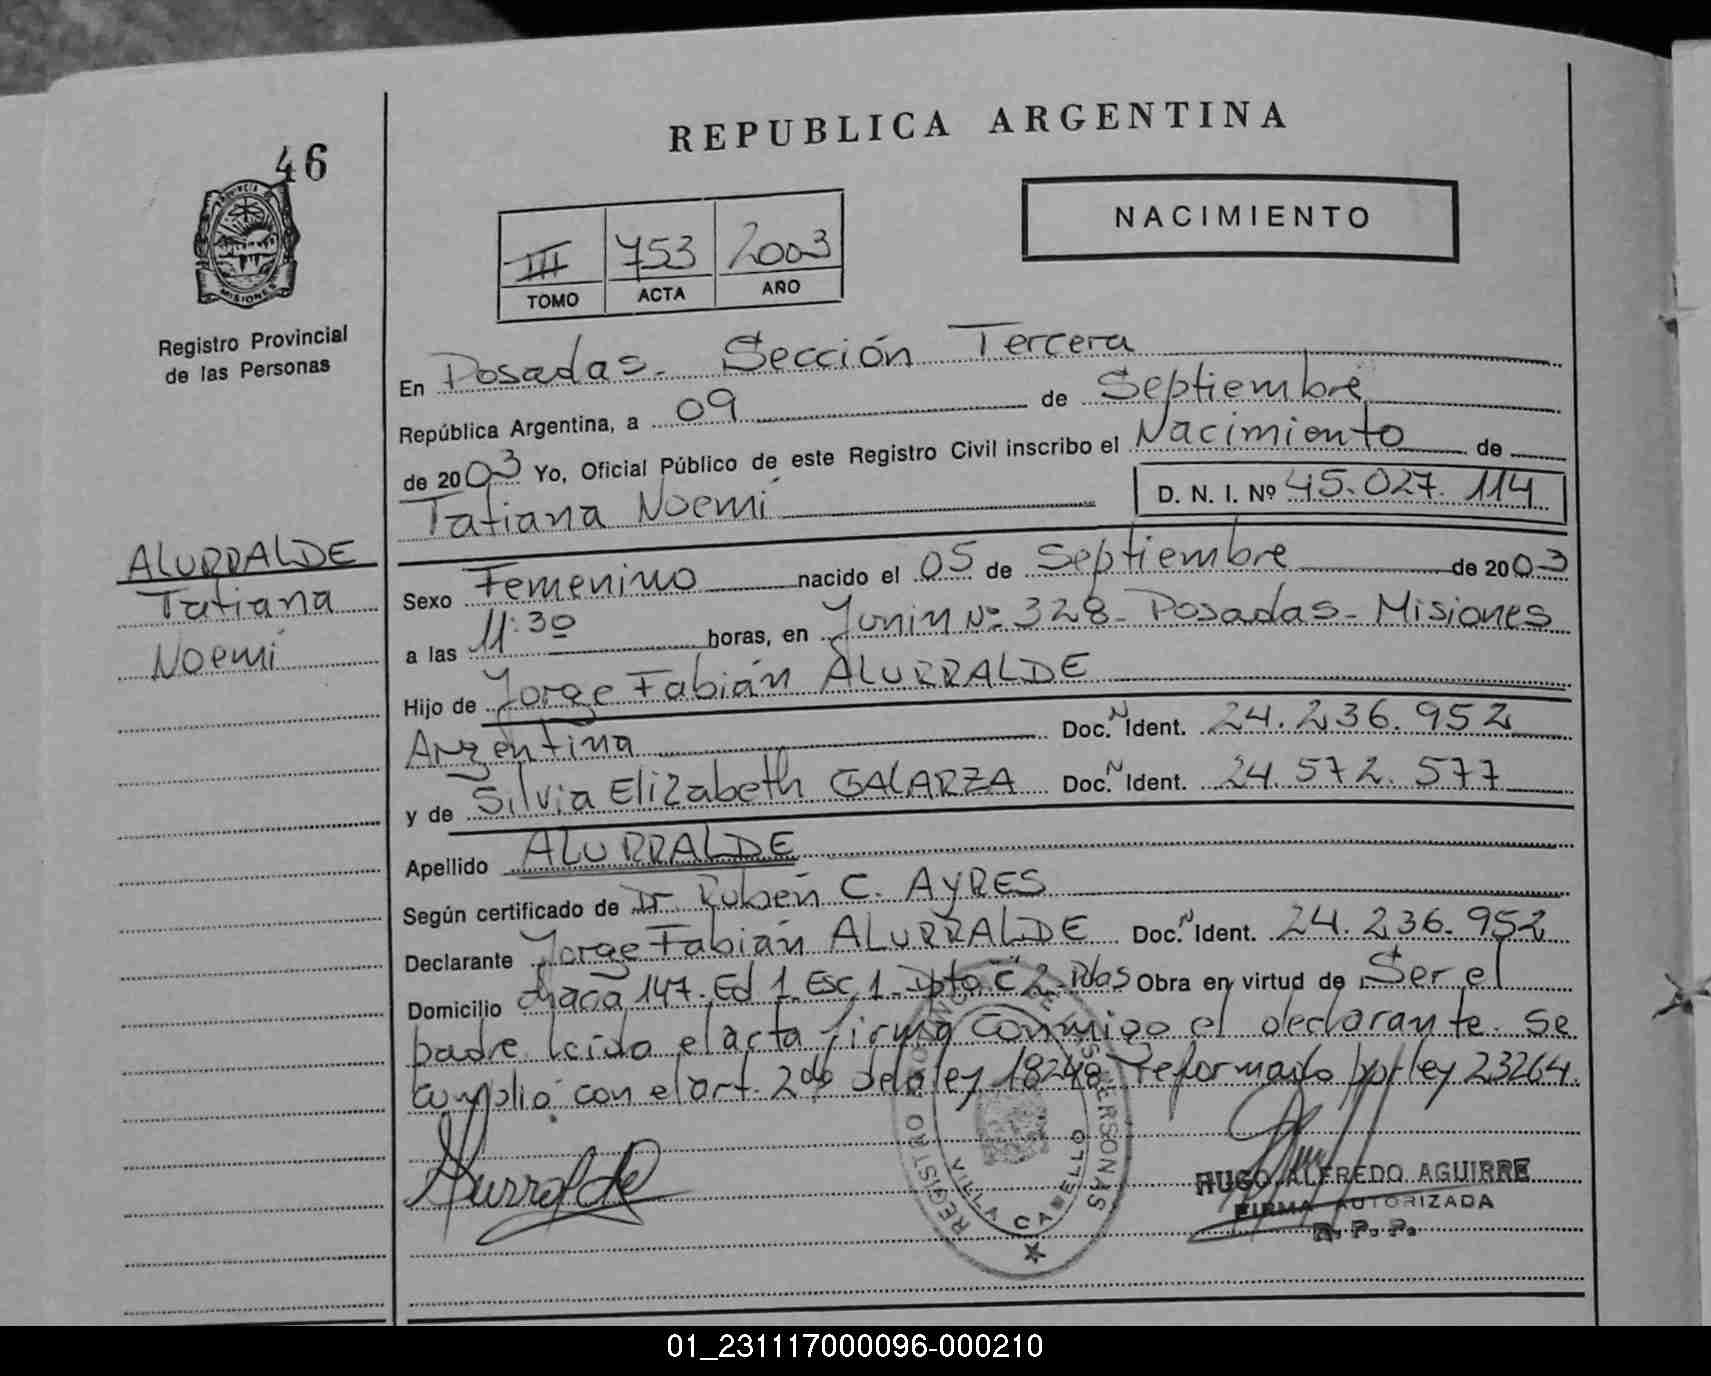 REPUBLICA ARGENTINA
46
PROVINCIA DE
MISIONES
Registro Provincial
de las Personas
NACIMIENTO
III 753 2003
TOMO ACTA AÑO
En Posadas - Sección Tercera
República Argentina, a 09 de Septiembre
de 2003 Yo, Oficial Público de este Registro Civil inscribo el Nacimiento de
Tatiana Noemí D. N. I. Nº 45.027.114
ALURRALDE
Tatiana
Noemí
Sexo Femenino nacido el 05 de Septiembre de 2003
a las 11:30 horas, en Junin Nº 328 - Posadas - Misiones
Hijo de Jorge Fabián ALURRALDE
Argentina Doc. N Ident. 24.236.952
y de Silvia Elizabeth GALARZA Doc. N Ident. 24.572.577
Apellido ALURRALDE
Según certificado de Dr. Rubén C. AYRES
Declarante Jorge Fabián ALURRALDE Doc. N Ident. 24.236.952
Domicilio chaca 147. Ed 1. Esc. 1 - Dpto "C" 2 - Pdas Obra en virtud de Ser el
padre. leida el acta firma conmigo el declarante. Se
cumplió con el art. 2do de la ley 18248. reformado por ley 23264.
Alurralde
REGISTRO PERSONAS
VILLA CABELLO
HUGO ALFREDO AGUIRRE
FIRMA AUTORIZADA
R. P. P.
01_231117000096-000210